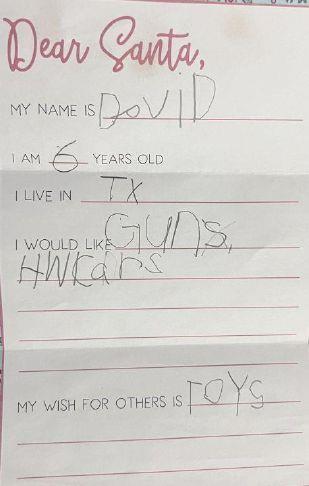 Dear Santa,
MY NAME IS DOVID
I AM 6 YEARS OLD
I LIVE IN TX
I WOULD LIKE GUNS,
HWCars
MY WISH FOR OTHERS IS TOYS